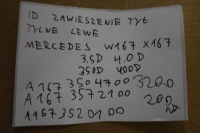 ID ZAWIESZENIE TYŁ
TYLNE LEWE
MERCEDES W167 X167
3.5D 4.0D
350D 400D
A 167 350 4700 3200
A 167 357 2100 200
A167 352 01 00